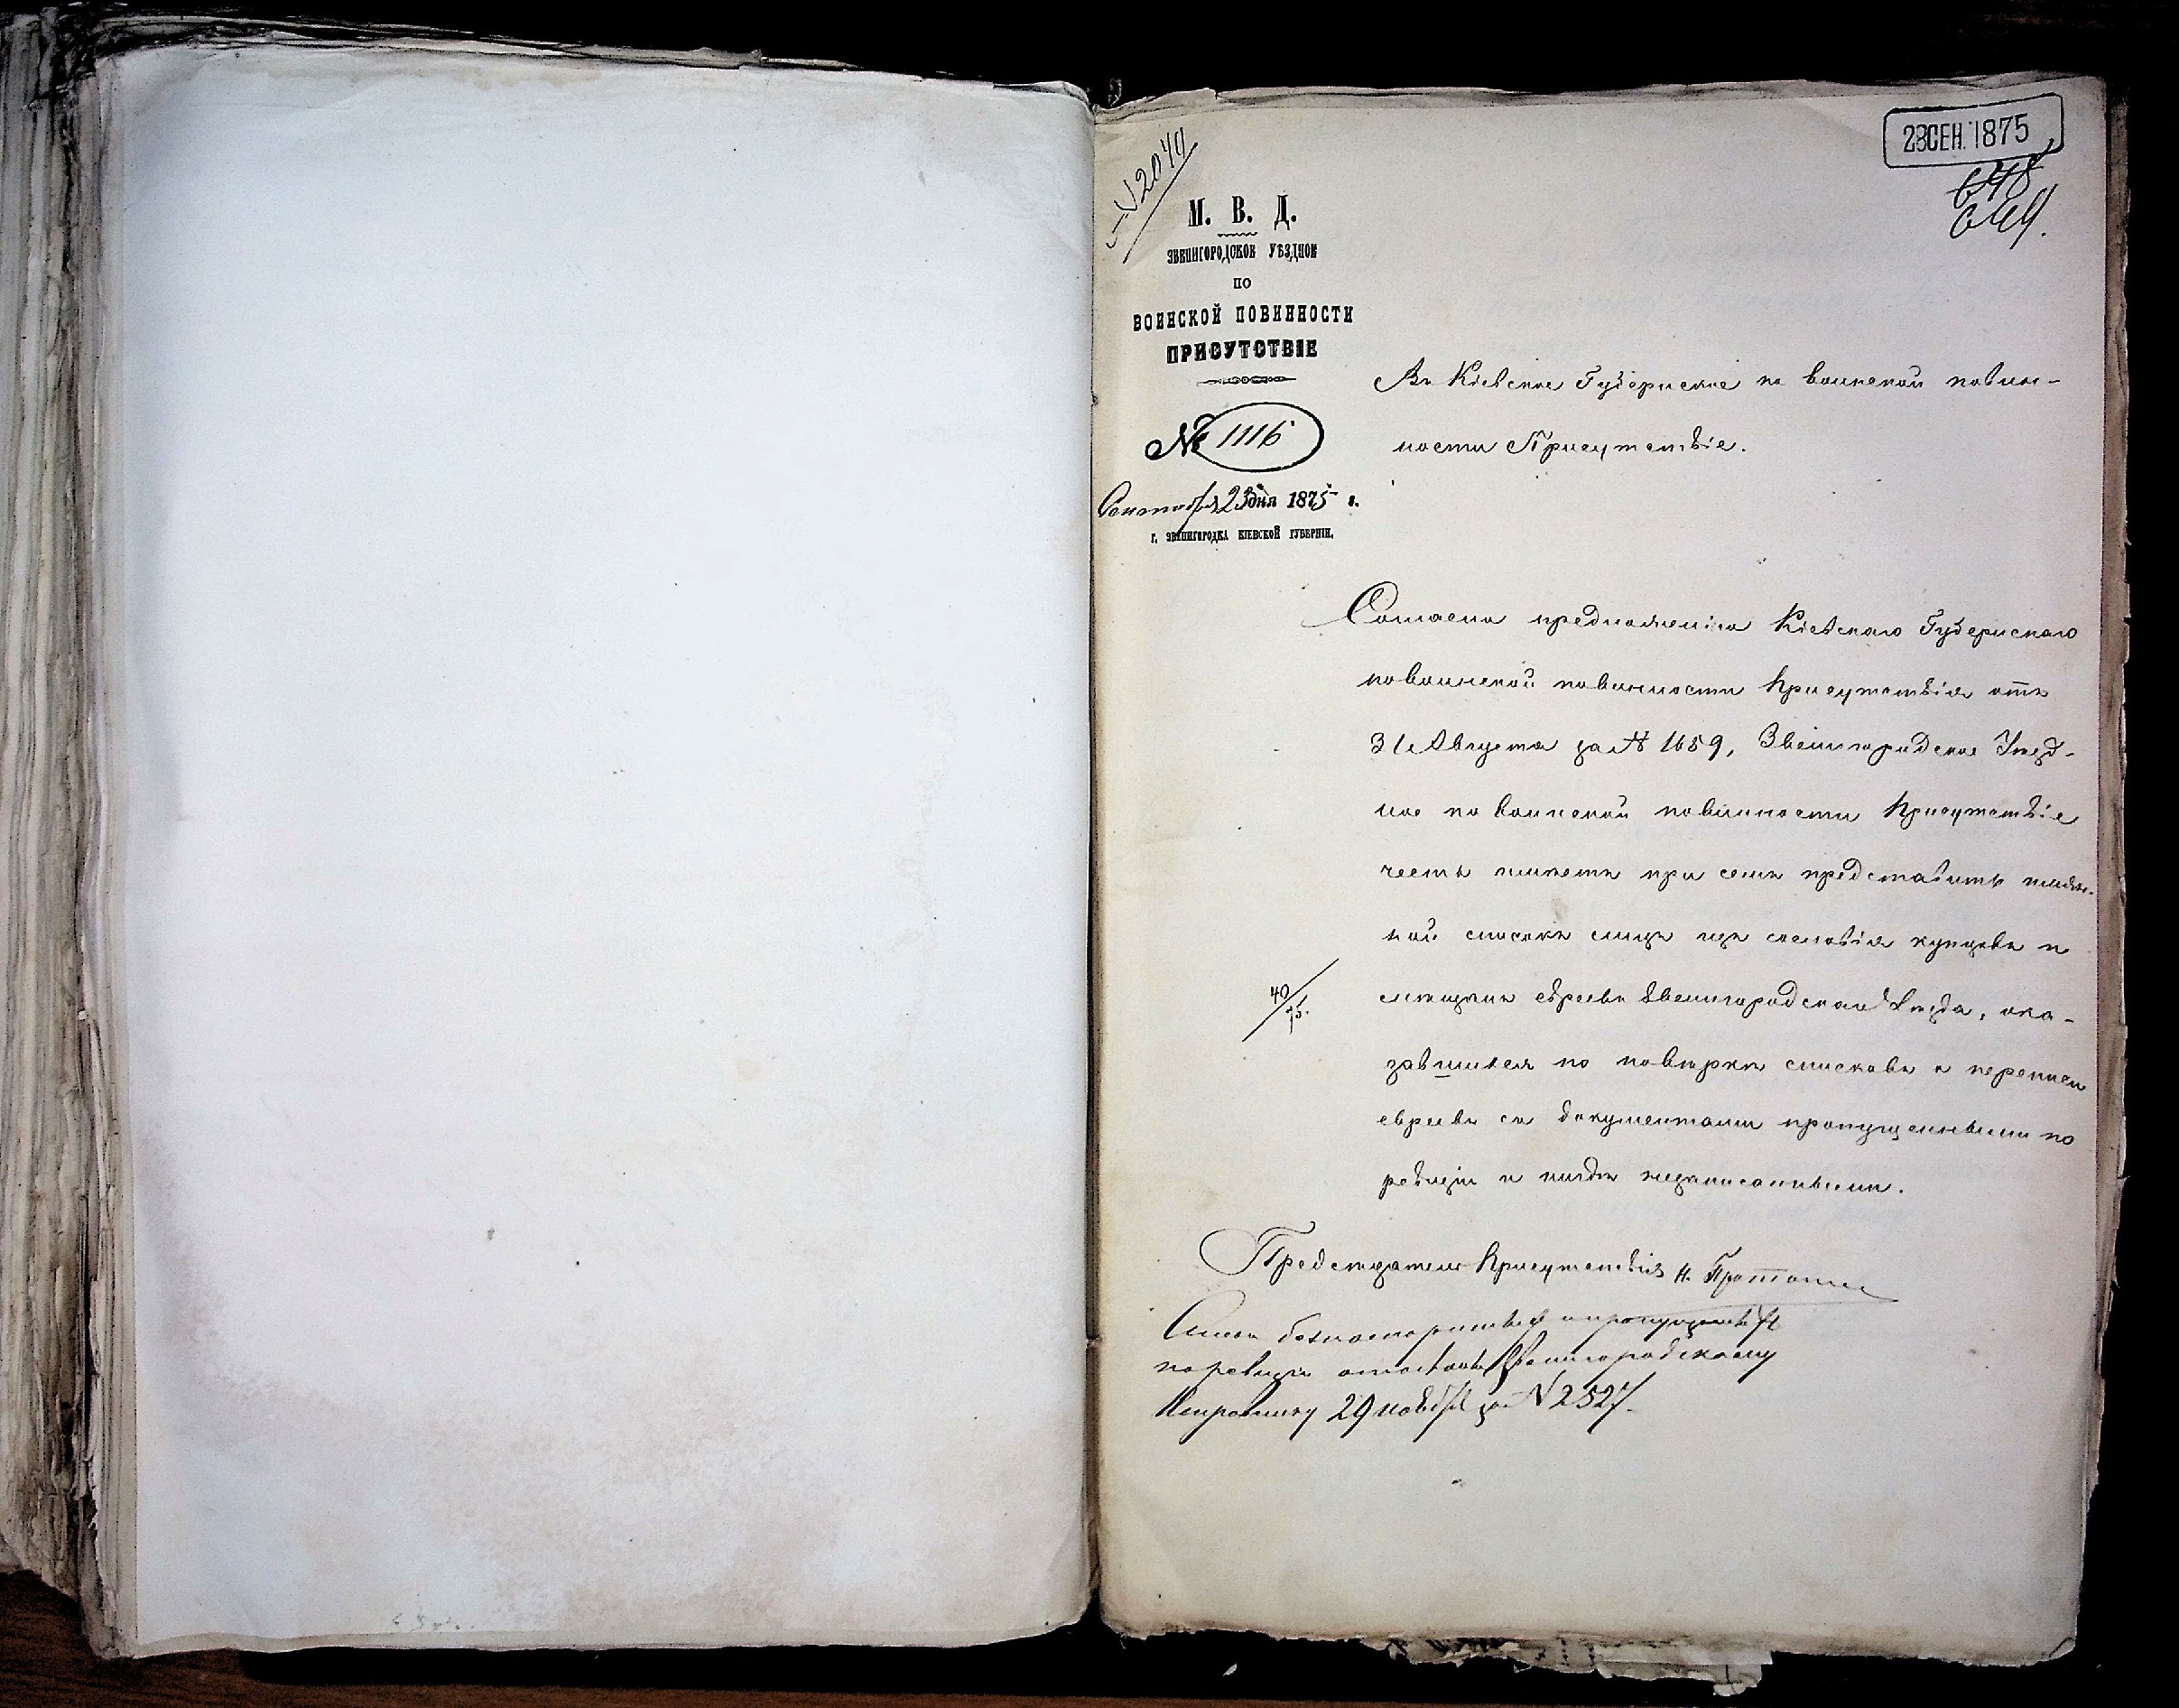 28 СЕН. 1875
648
649.
№ 2049
М. В. Д.
ЗВЕНИГОРОДСКОЕ УѢЗДНОЕ
ПО
ВОИНСКОЙ ПОВИННОСТИ
ПРИСУТСТВІЕ
№ 1116
Сентября 23 дня 1875 г.
Г. ЗВЕНИГОРОДКА КІЕВСКОЙ ГУБЕРНІИ.
Въ Кіевское Губернское по воинской повин-
ности Присутствіе.
Согласно предложенію Кіевскаго Губернскаго
по воинской повинности Присутствія отъ
31 Августа за № 1659, Звенигородское Уѣзд-
ное по воинской повинности Присутствіе
честь имѣетъ при семъ представить
списокъ лицъ изъ сословія купцовъ и
мѣщанъ евреевъ Звенигородскаго Уѣзда, ока-
завшихся по повѣркѣ списковъ о переписи
евреевъ съ документами пропущенными по
ревизіи и нигдѣ незаписанными.
40/75.
Предсѣдатель Присутствія Н.
по ревизіи Звенигородскому
Исправнику 29 ноября за № 2527.